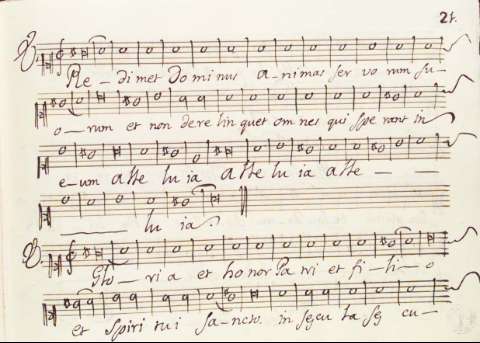 21.
V. Re- di met Do mi nus a- ni mas ser vo rum su-
o- rum et non dere lin quet om nes qui spe rant in
e- um alle lu ia alle lu ia alle -
lu ia.
V. Glo- ri a et ho nor Pa tri et fi- li- o
et spiri tu i sa- ncto. in secu la